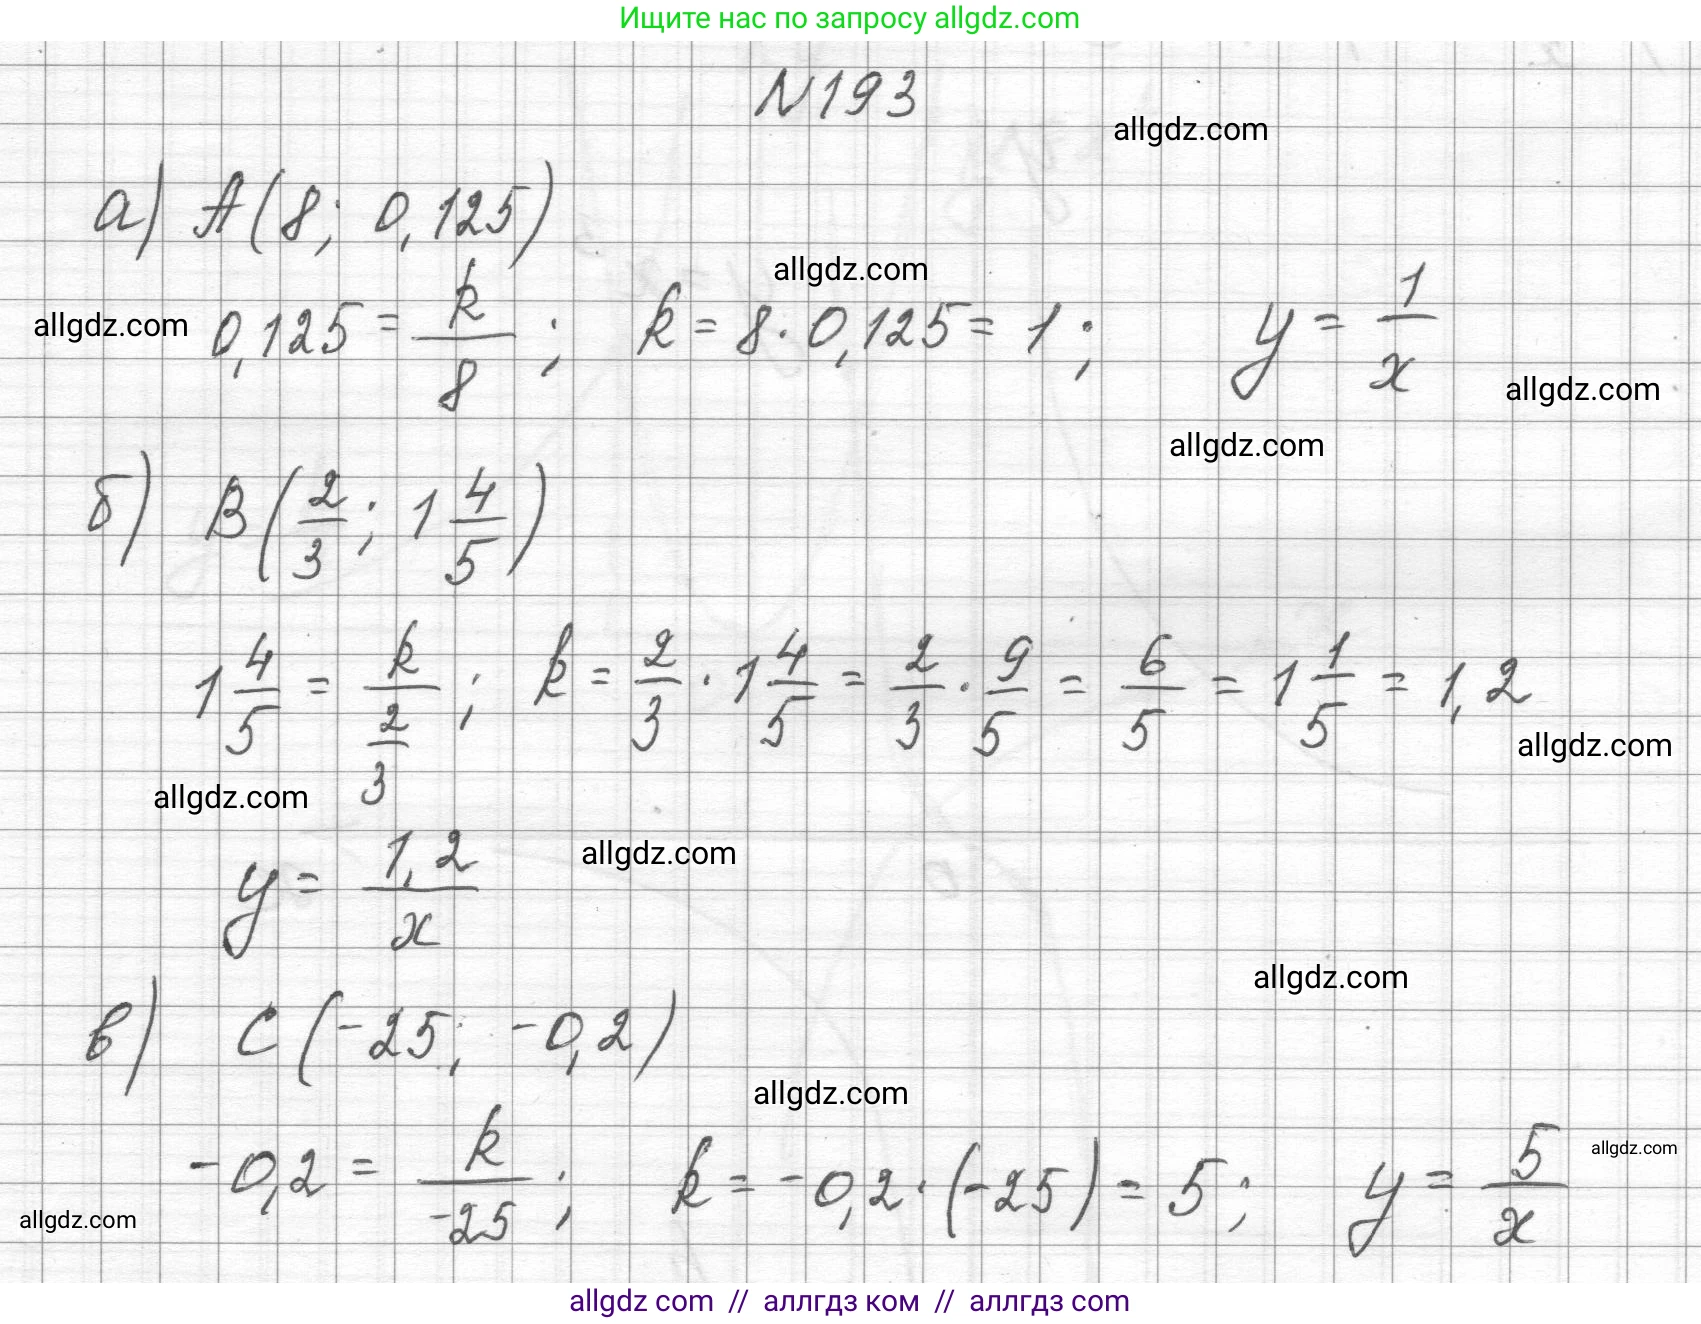 Ищите нас по запросу allgdz.com
N193
allgdz.com
а) A(8; 0,125)
allgdz.com
allgdz.com
0,125 = k/8 ; k = 8 · 0,125 = 1 ; y = 1/x
allgdz.com
allgdz.com
б) B(2/3 ; 1 4/5)
1 4/5 = k/(2/3) ; k = 2/3 · 1 4/5 = 2/3 · 9/5 = 6/5 = 1 1/5 = 1,2
allgdz.com
allgdz.com
allgdz.com
y = 1,2/x
allgdz.com
в) C(-25; -0,2)
allgdz.com
allgdz.com
-0,2 = k/-25 ; k = -0,2 · (-25) = 5 ; y = 5/x
allgdz.com
allgdz com // аллгдз ком // аллгдз com